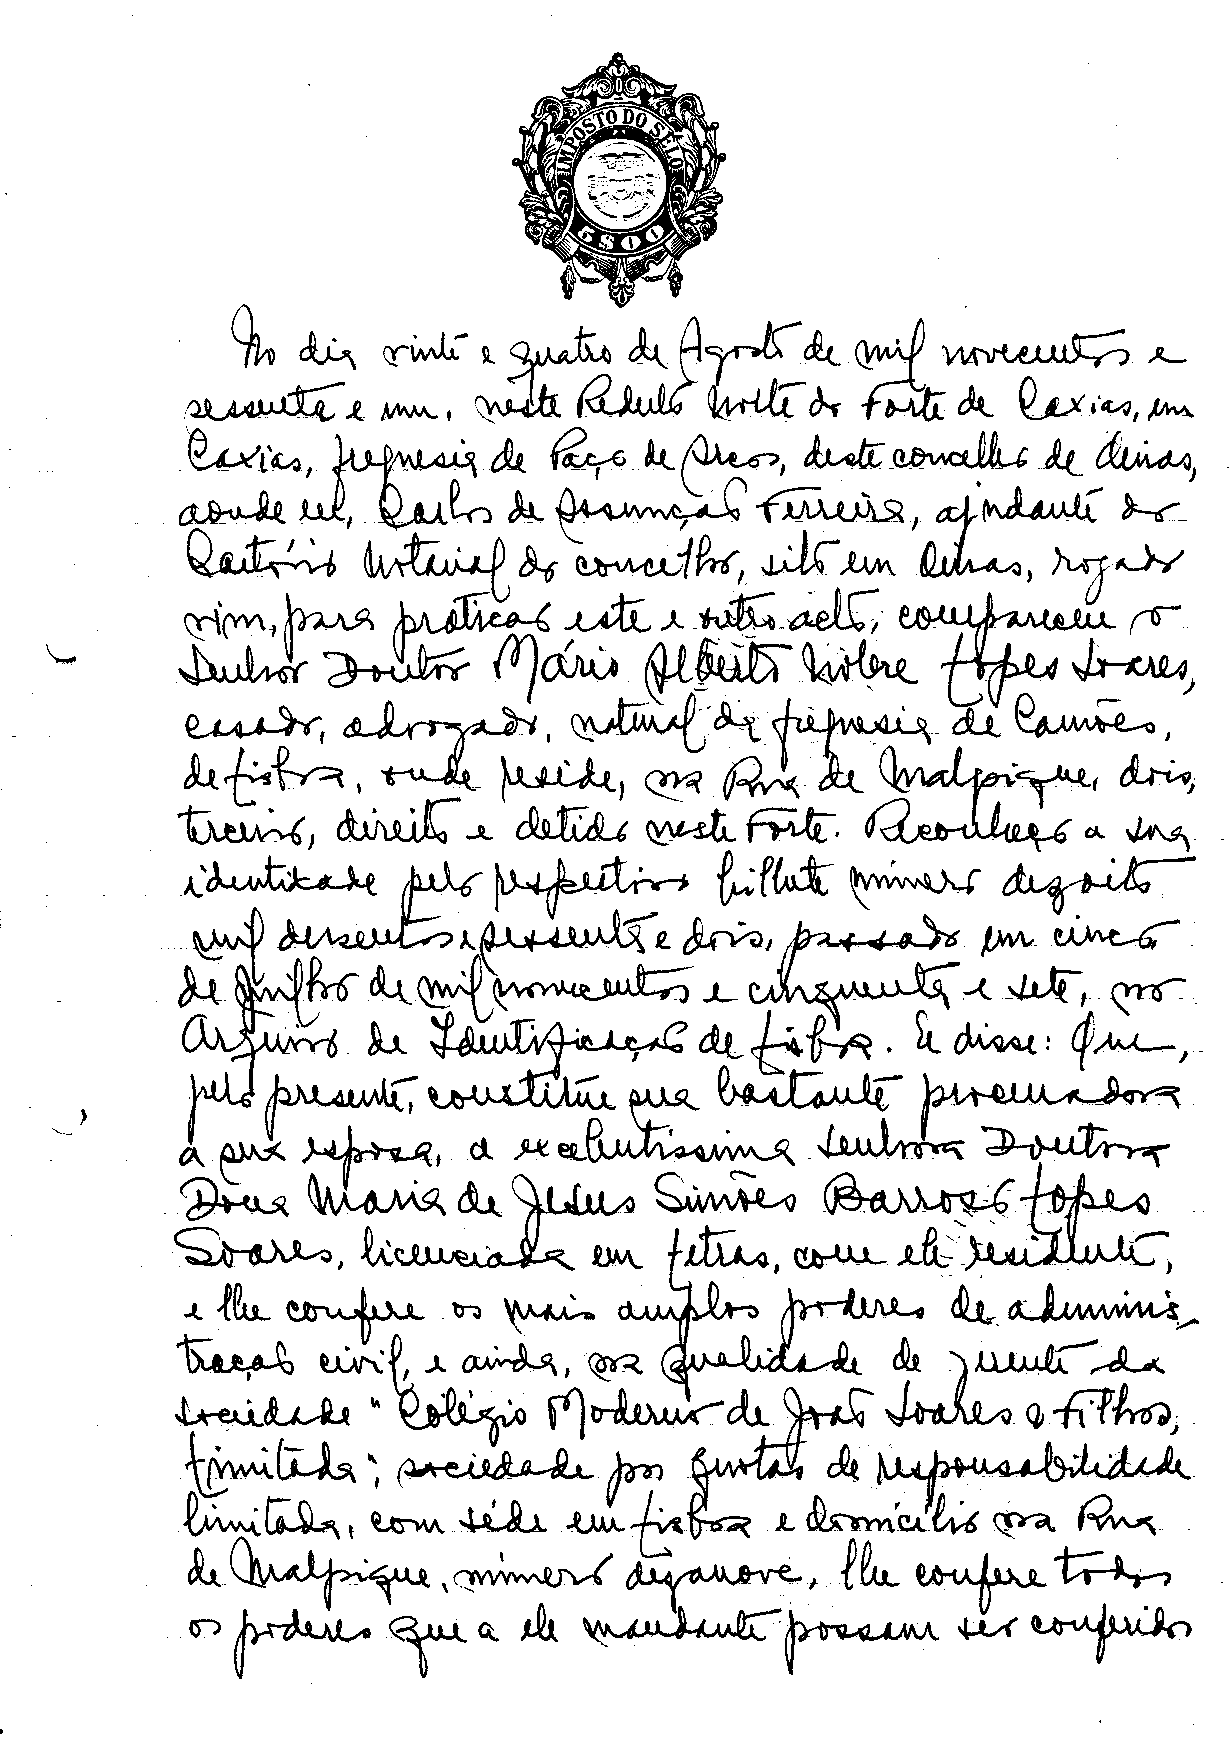 IMPOSTO DO SÊLO
5$00
No dia vinte e quatro de Agosto de mil novecentos e
sessenta e um, neste Reduto Norte do Forte de Caxias, em
Caxias, freguesia de Paço de Arcos, deste concelho de Oeiras,
aonde eu, Carlos de Assunção Ferreira, ajudante do
Cartório Notarial do concelho, sito em Oeiras, rogado
vim, para praticar este e outro acto, compareceu o
Senhor Doutor Mário Alberto Nobre Lopes Soares,
casado, advogado, natural da freguesia de Camões,
de Lisboa, onde reside, na Rua de Malpique, dois,
terceiro, direito e detido neste Forte. Reconheço a sua
identidade pelo respectivo bilhete número dezoito
mil duzentos e sessenta e dois, passado em cinco
de Julho de mil novecentos e cinquenta e sete, no
Arquivo de Identificação de Lisboa. E disse: Que,
pelo presente, constitue sua bastante procuradora
a sua esposa, a excelentissima Senhora Doutora
Dona Maria de Jesus Simões Barroso Lopes
Soares, licenciada em Letras, com ele residente,
e lhe confere os mais amplos poderes de adminis-
tração civil, e ainda, na qualidade de gerente da
sociedade "Colégio Moderno de João Soares & Filhos,
Limitada", sociedade por quotas de responsabilidade
limitada, com séde em Lisboa e domicílio na Rua
de Malpique, número dezanove, lhe confere todos
os poderes que a ele mandante possam ser conferidos